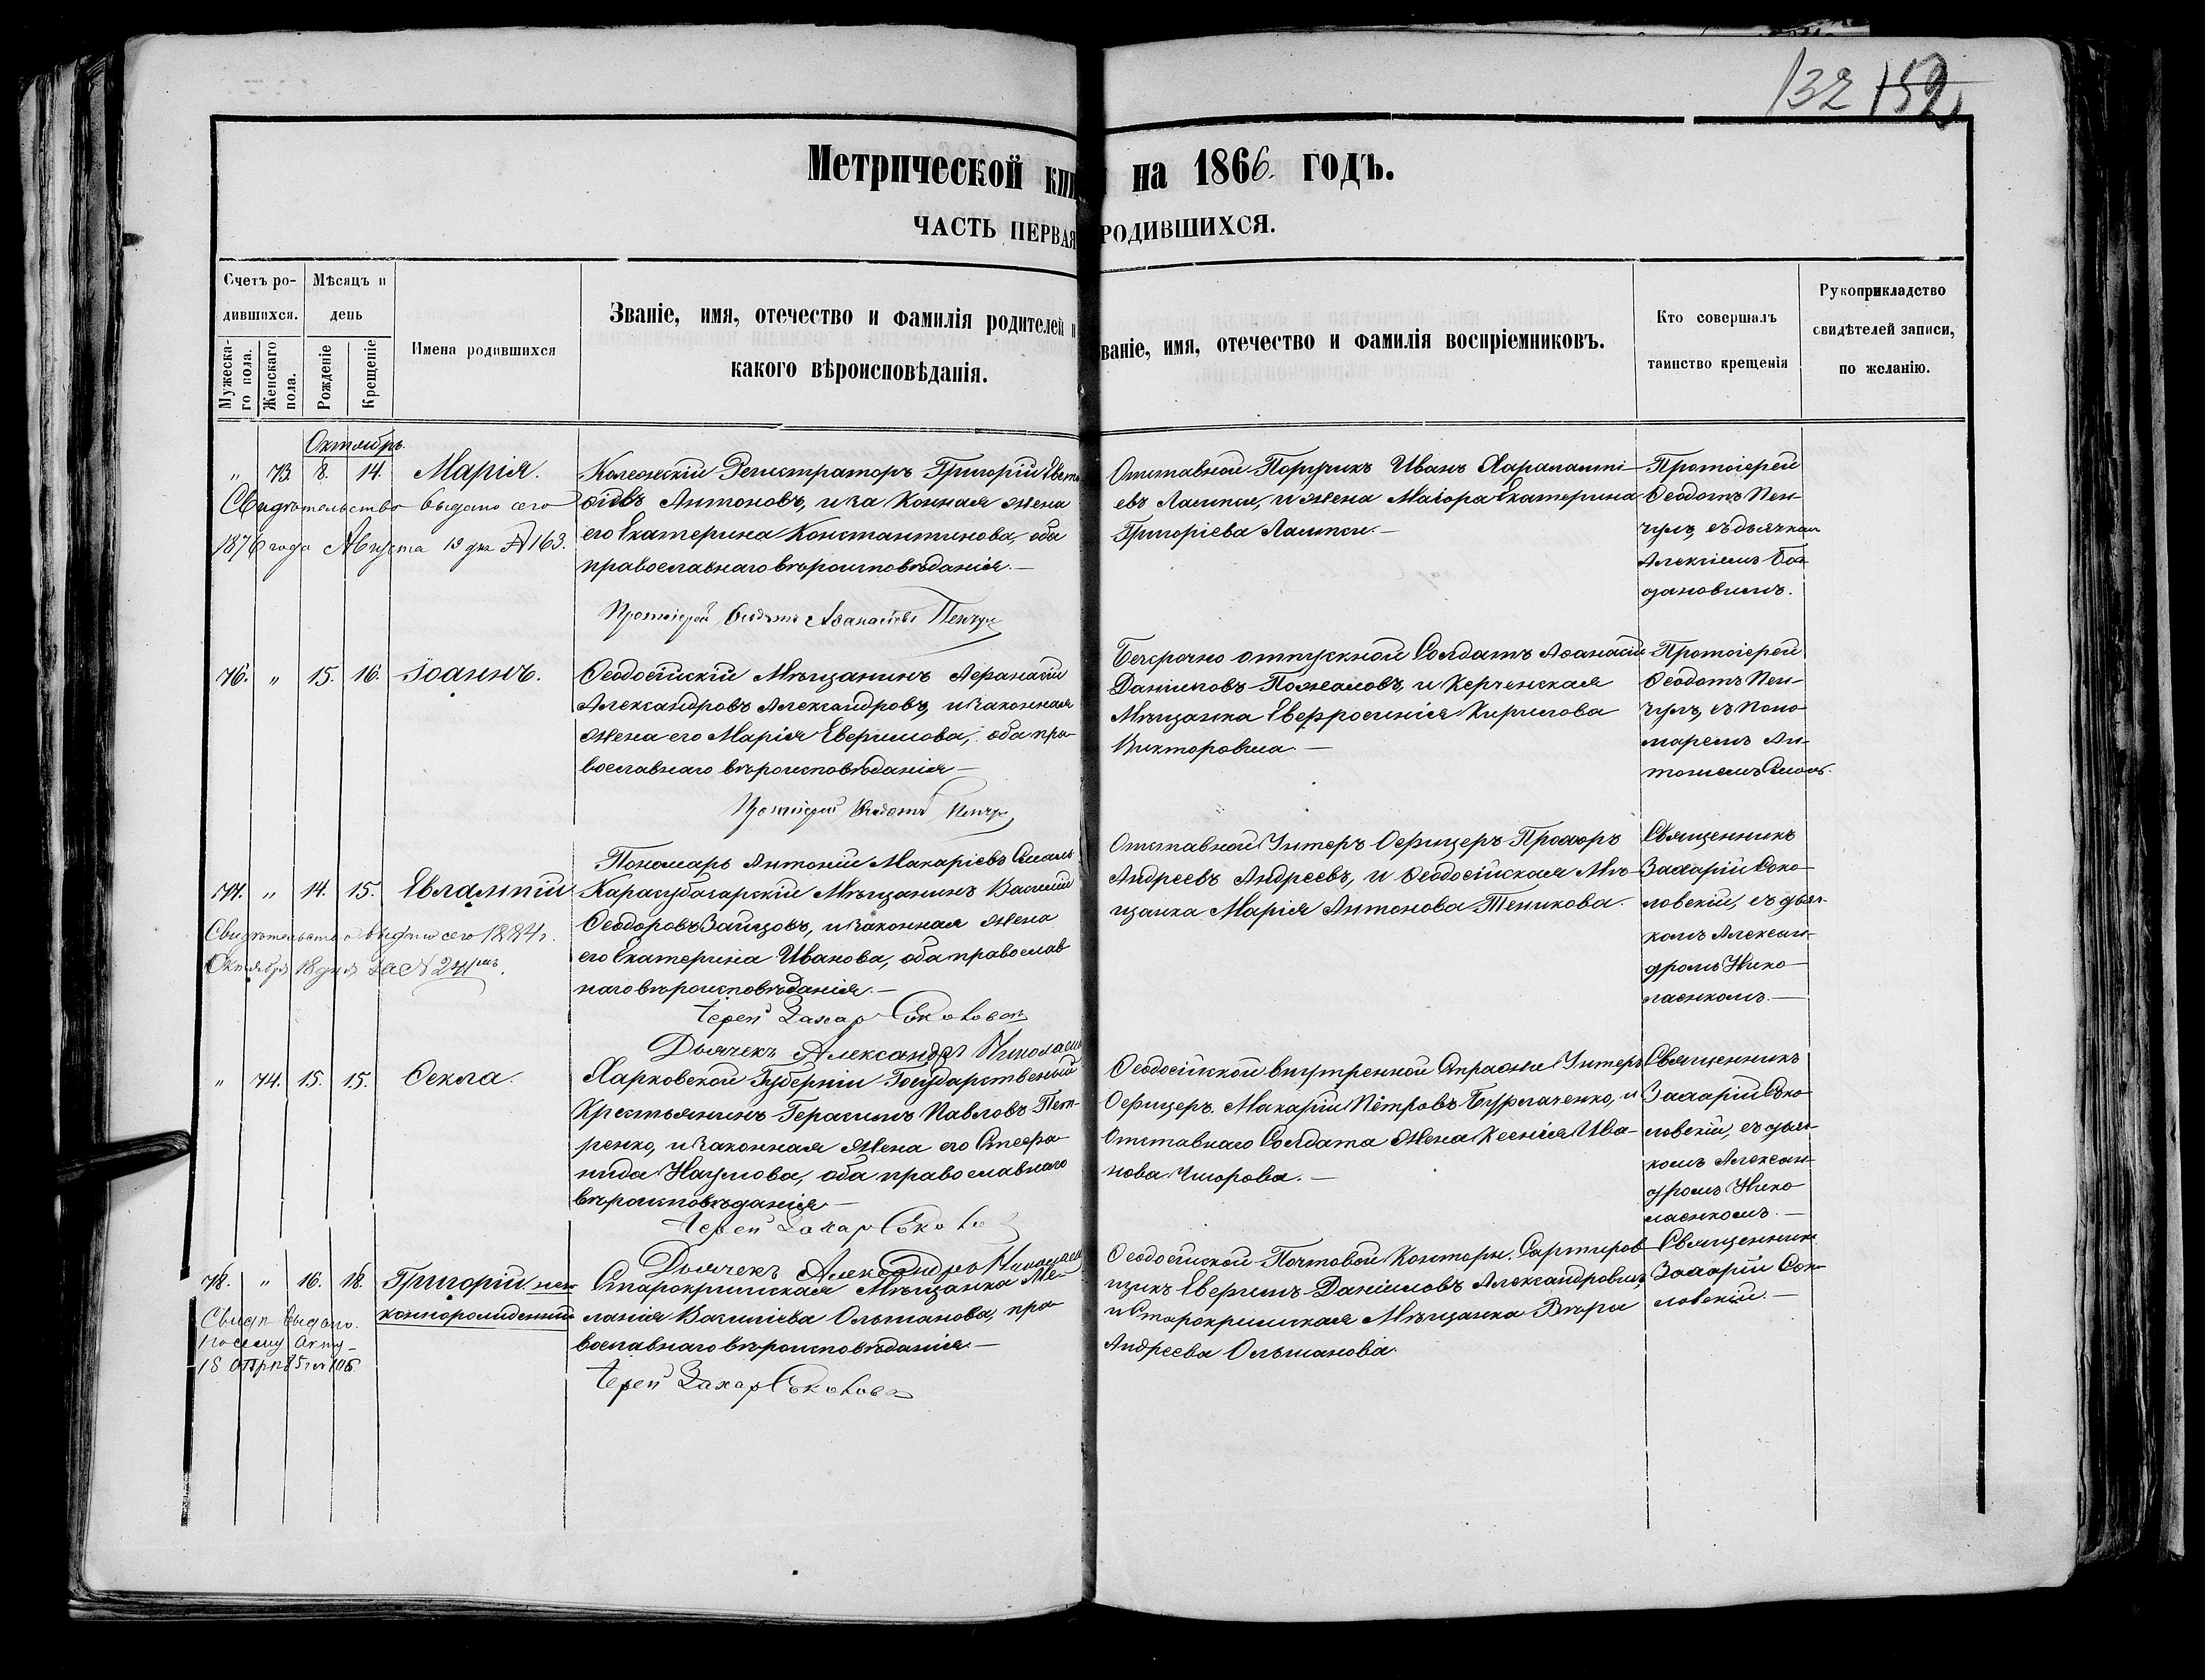 132 152
Метрической кни на 1866. годъ.
ЧАСТЬ ПЕРВАЯ РОДИВШИХСЯ.
Счетъ ро-
дившихся.
Мѣсяцъ и
день
Мужеска-
го пола.
Женскаго
пола.
Рожденіе
Крещеніе
Имена родившихся
Званіе, имя, отечество и фамилія родителей и
какого вѣроисповѣданія.
ваніе, имя, отечество и фамилія воспріемниковъ.
Кто совершалъ
таинство крещенія
Рукоприкладство
свидѣтелей записи,
по желанію.
Октябрь.
" 73. 8. 14. Марія.
Свидѣтельство выдано сего
1876 года Августа 13 дня № 163.
Колежскій Регистраторъ Григорій Евста
фіевъ Антоновъ, и за Конная жена
его Екатерина Константинова, оба
православнаго вѣроисповѣданія.—
Протоіерей Ѳеодотъ Аѳанасіевъ Пенчул
Отставной Поручикъ Иванъ Харалампі-
евъ Лампси, и жена Маіора Екатерина
Григоріева Лампси.—
Протоіерей
Ѳеодотъ Пен-
чулъ, съ дьячкомъ
Алексіемъ Бог
дановимъ.
76. " 15. 16. Іоаннъ.
Ѳеодосійскій Мѣщанинъ Афанасій
Александровъ Александровъ, и Законная
жена его Марія Еверимова, оба пра-
вославнаго вѣроисповѣданія—
Протоіерей Ѳеодотъ Пенчул
Безсрочно отпускной Солдатъ Аѳанасій
Даніиловъ Пожаловъ, и Керченская
Мѣщанка Евфросинія Кирилова
Викторовша.—
Протоіерей
Ѳеодотъ Пен-
чулъ, съ Поно-
маремъ Ан-
тоніемъ Смаль.
Пономарь Антоній Макаріевъ Смаль
77. " 14. 15. Евлампій
Свидѣтельство выдано сего 1884 г.
Октября 18 дня за № 241мъ.
Карасубазарскій Мѣщанинъ Василій
Ѳеодоровъ Зайцовъ, и Законная жена
его Екатерина Иванова, оба православ
наго вѣроисповѣданія.—
Іерей Захар Соколовс
Дьячекъ Александръ Николаен
Отставной Унтеръ Офицеръ Прохоръ
Андреевъ Андреевъ, и Ѳеодосійская Мѣ-
щанка Марія Антонова Теникова.
Священникъ
Захарій Соко-
ловскій, съ дьяч-
комъ Алексан-
дромъ Нико-
лаенкомъ.—
" 74. 15. 15. Ѳекла.
Харковской Губерніи Государственый
Крестьянинъ Герасимъ Павловъ Пет-
ренко, и Законная жена его Стефа-
нида Наумова, оба православнаго
вѣроисповѣданія—
Іерей Захар Соколо
Дьячекъ Александръ Николаен
Ѳеодосійской внутренной Стражи Унтеръ
Офицеръ Макарій Петровъ Бурлаченко, и
Отставнаго Солдата жена Ксенія Ива-
нова Чморова.—
Священникъ
Захарій Соко-
ловскій, съ дьяч-
комъ Алексан-
дромъ Нико-
лаенкомъ.—
78. " 16. 18. Григорій неза
коннорожденный
Свидѣт выдано.
по сему Акту
Старокрымская Мѣщанка Ме-
ланія Василіева Ольшанова, пра-
вославнаго вѣроисповѣданія—
Іерей Захар Соколовс
Ѳеодосійской Почтовой Конторы Сартиров
щикъ Еверимъ Даніиловъ Александровичъ,
и Старокрымская Мѣщанка Вѣра
Андреева Ольшанова.
Священник
Захарій Соко-
ловскій.—